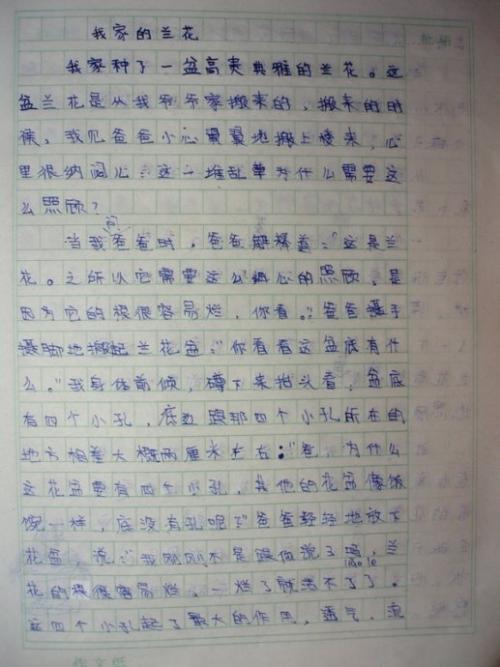 我家的兰花
我家种了一盆高贵典雅的兰花。这
盆兰花是从我爷爷家搬来的,搬来的时
候,我见爸爸小心翼翼地搬上楼来,心
里很纳闷儿:这一堆乱草为什么需要这
么照顾?
当我问爸爸时,爸爸解释道:“这是兰
花。之所以它需要这么细心的照顾,是
因为它的根很容易烂,你看。”爸爸蹑手
蹑脚地搬起兰花盆:“你看看这盆底有什
么。”我身体前倾,蹲下来抬头看,盆底
有四个小孔,底边跟那四个小孔所在的
地方相差大概两厘米左右:“爸,为什么
这花盆要有四个小孔,其他的花盆像饭
碗一样,底没有孔呢?”爸爸轻轻地放下
花盆,说:“我刚刚不是跟你说了吗,兰
花的根很容易烂,一烂了就活不了了。
liǎo le
这四个小孔起了最大的作用,透气,流
作文纸